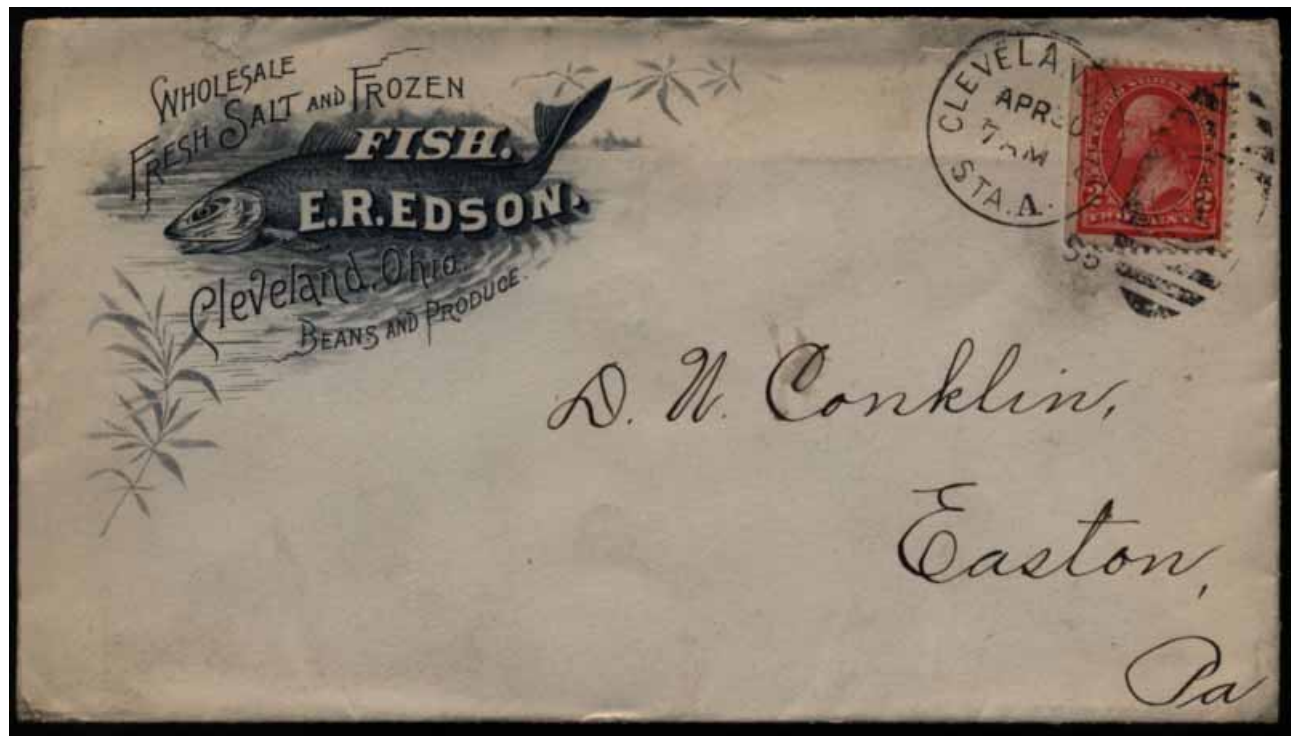 WHOLESALE
FRESH SALT AND FROZEN
FISH.
E.R.EDSON.
Cleveland, Ohio.
BEANS AND PRODUCE.
CLEVELAND
APR 30
7 AM
STA. A.
D. W. Conklin,
Easton,
Pa